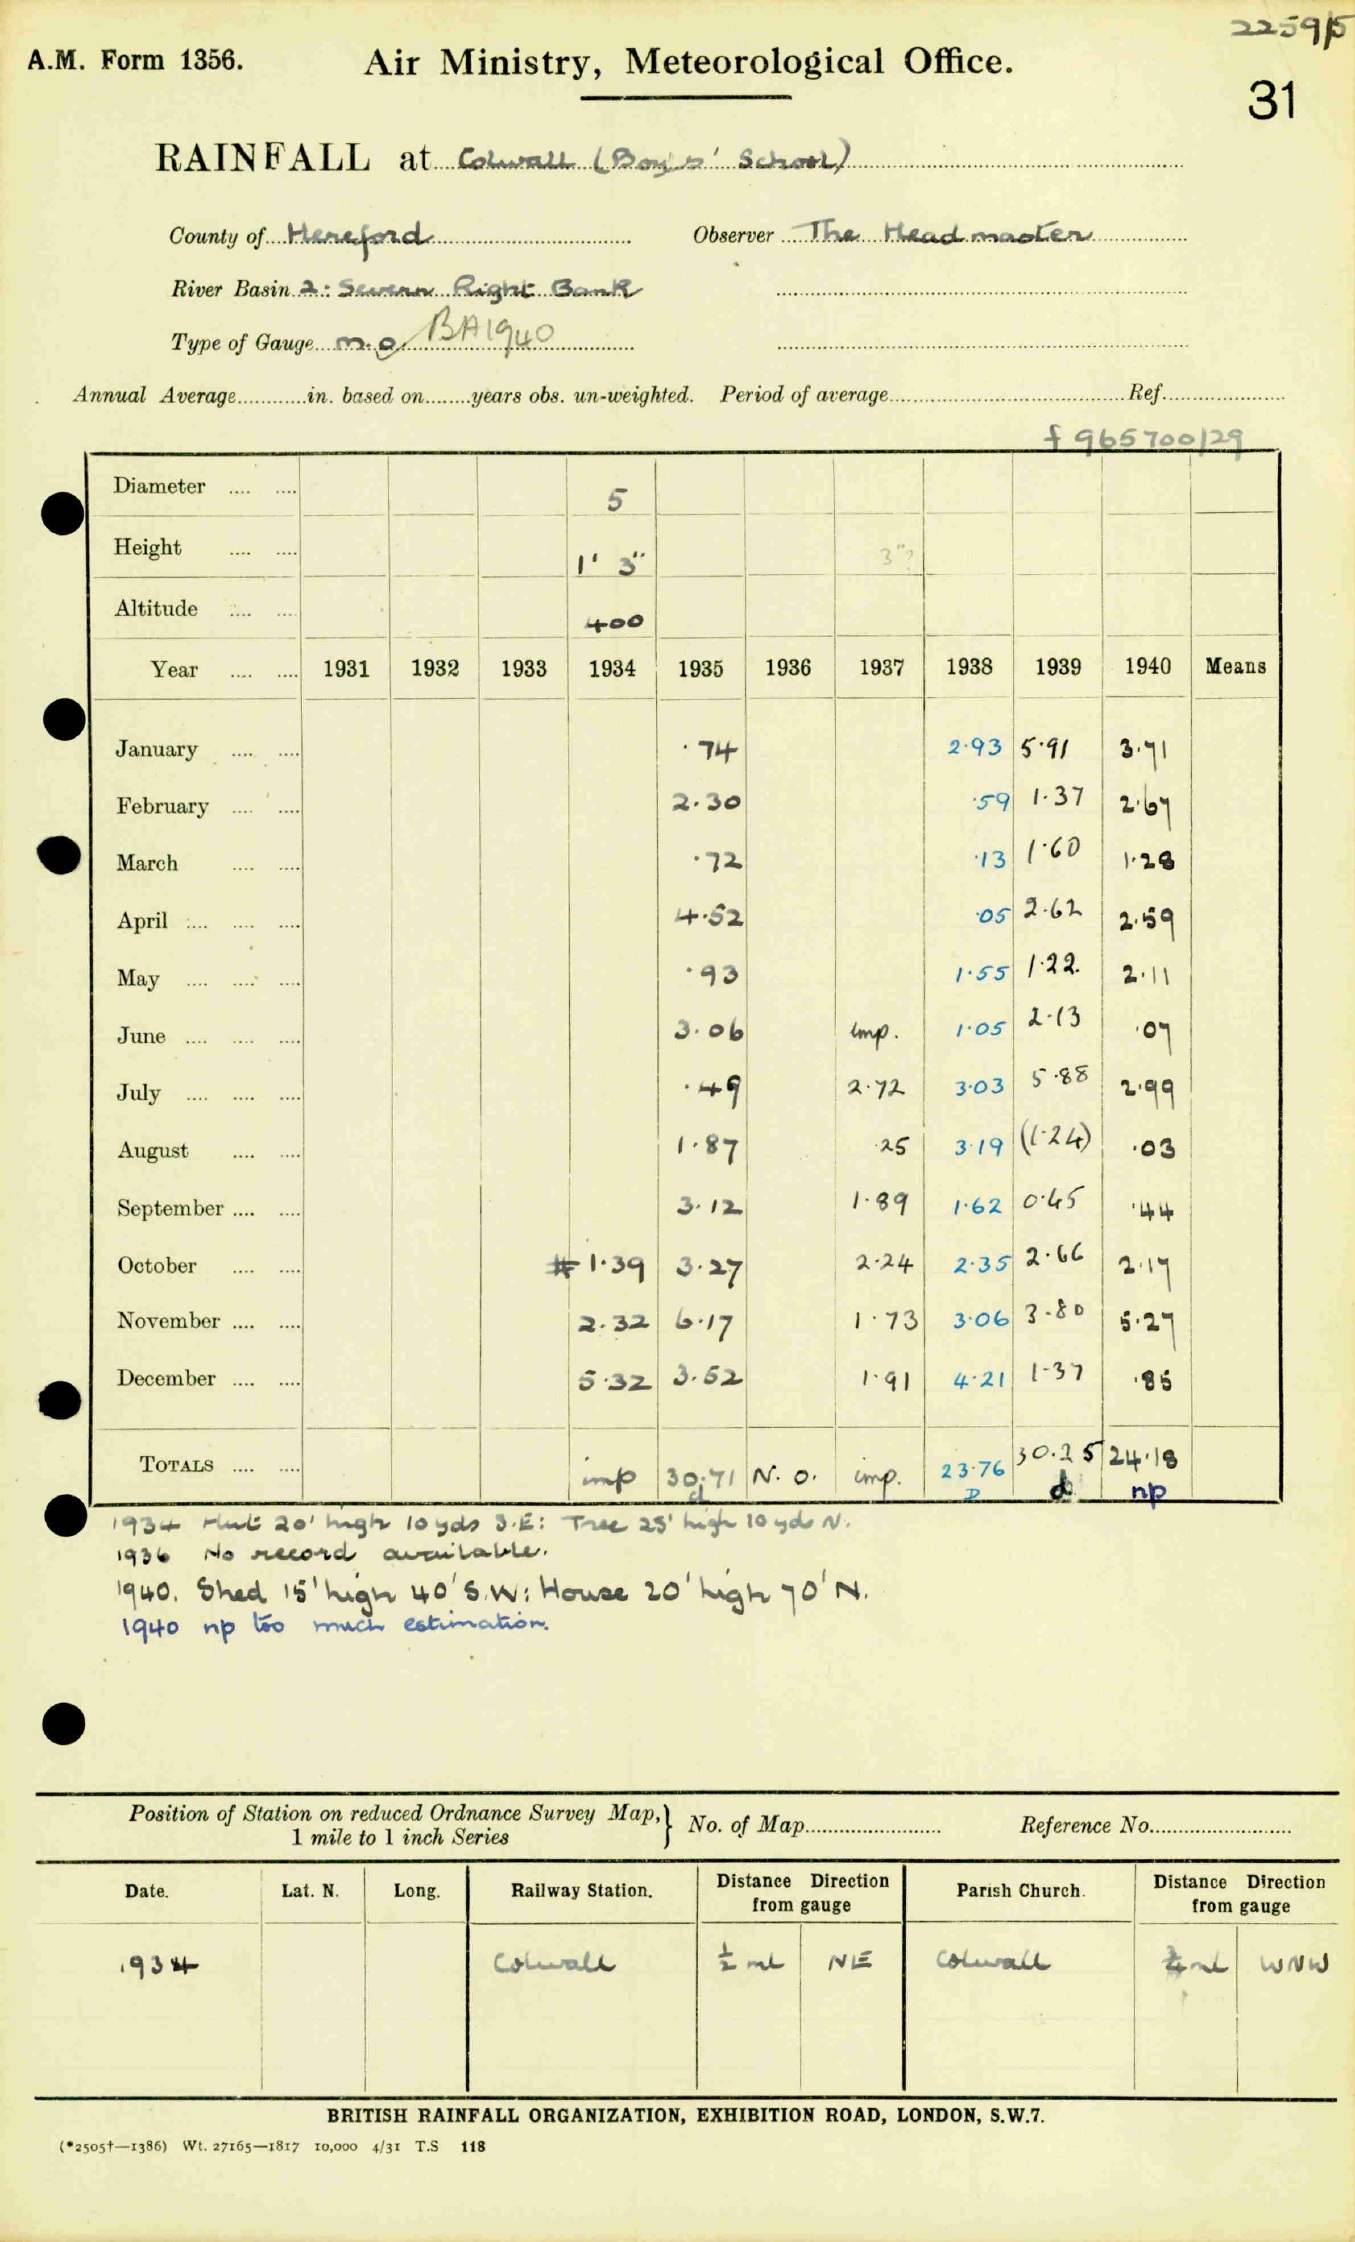 22591/5
A.M. Form 1356. Air Ministry, Meteorological Office.
31
RAINFALL at Colwall (Boys' School)
County of Hereford Observer The Headmaster
River Basin 2: Severn Right Bank
Type of Gauge m.o. BA1940
Annual Average............in. based on........years obs. un-weighted. Period of average........................................Ref.....................
f 965700/29
Diameter .... .... 5
Height .... .... 1' 3" 3"?
Altitude .... .... 400
Year .... .... 1931 1932 1933 1934 1935 1936 1937 1938 1939 1940 Means
January .... .... ·74 2·93 5·91 3·71
February .... .... 2·30 ·59 1·37 2·67
March .... .... ·72 ·13 1·60 1·28
April .... .... .... 4·52 ·05 2·62 2·59
May .... .... .... ·93 1·55 1·22 2·11
June .... .... .... 3·06 imp. 1·05 2·13 ·07
July .... .... .... ·49 2·72 3·03 5·88 2·99
August .... .... 1·87 ·25 3·19 (1·24) ·03
September .... .... 3·12 1·89 1·62 0·45 ·44
October .... .... # 1·39 3·27 2·24 2·35 2·66 2·17
November .... .... 2·32 6·17 1·73 3·06 3·80 5·27
December .... .... 5·32 3·52 1·91 4·21 1·37 ·85
TOTALS .... .... imp 30·71 N. O. imp. 23·76 30·25 24·18
d D d np
1934 Hut 20' high 10 yds S.E: Tree 25' high 10 yds N.
1936 No record available.
1940. Shed 15' high 40' S.W: House 20' high 70' N.
1940 np too much estimation.
Position of Station on reduced Ordnance Survey Map,} No. of Map........................ Reference No.........................
1 mile to 1 inch Series
Date. Lat. N. Long. Railway Station. Distance Direction from gauge Parish Church. Distance Direction from gauge
1934 Colwall ½ ml NE Colwall ¾ ml WNW
BRITISH RAINFALL ORGANIZATION, EXHIBITION ROAD, LONDON, S.W.7.
(*2505†—1386) Wt. 27165—1817 10,000 4/31 T.S 118